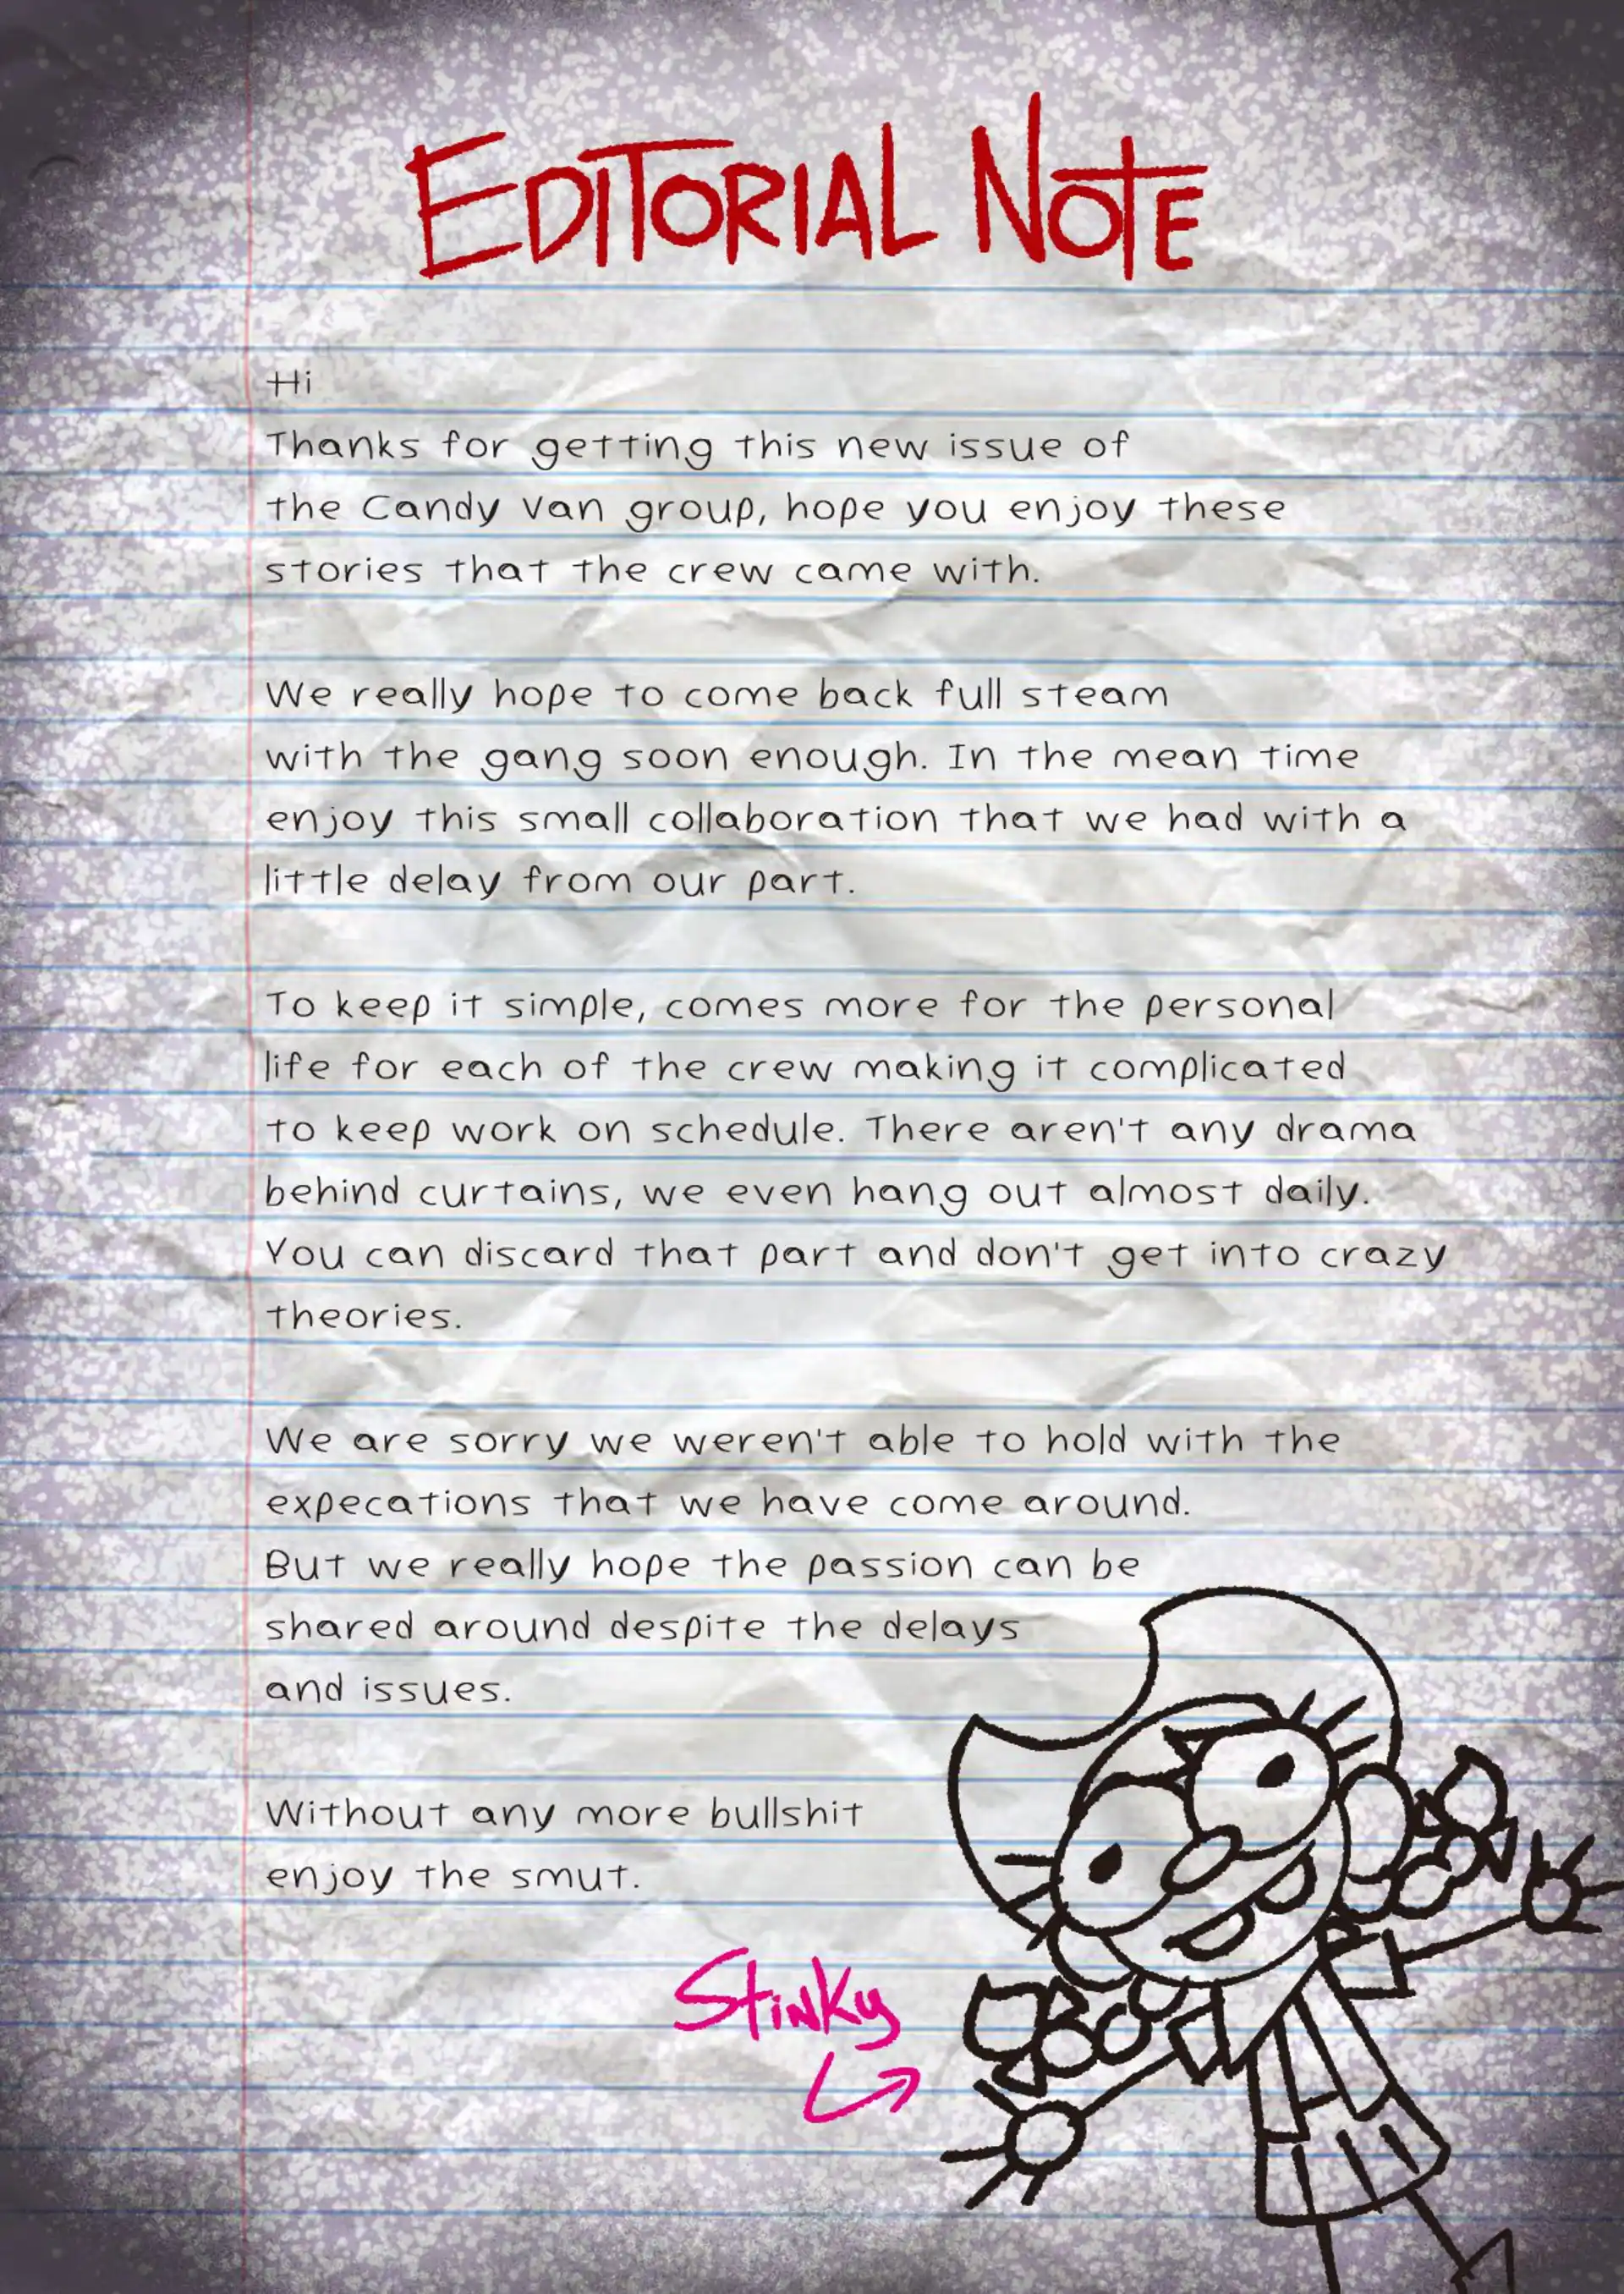 EDITORIAL NOTE
Hi
Thanks for getting this new issue of
the Candy Van group, hope you enjoy these
stories that the crew came with.
We really hope to come back full steam
with the gang soon enough. In the mean time
enjoy this small collaboration that we had with a
little delay from our part.
To keep it simple, comes more for the personal
life for each of the crew making it complicated
to keep work on schedule. There aren't any drama
behind curtains, we even hang out almost daily.
You can discard that part and don't get into crazy
theories.
We are sorry we weren't able to hold with the
expecations that we have come around.
But we really hope the passion can be
shared around despite the delays
and issues.
Without any more bullshit
enjoy the smut.
Stinky